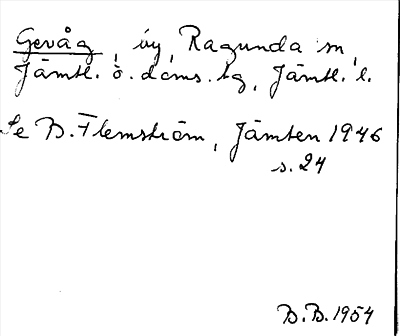 Gevåg, by, Ragunda sn,
Jämtl. ö. doms. tg, Jämtl. l.
Se B. Flemström, Jämten 1946
s. 24
B.B. 1954